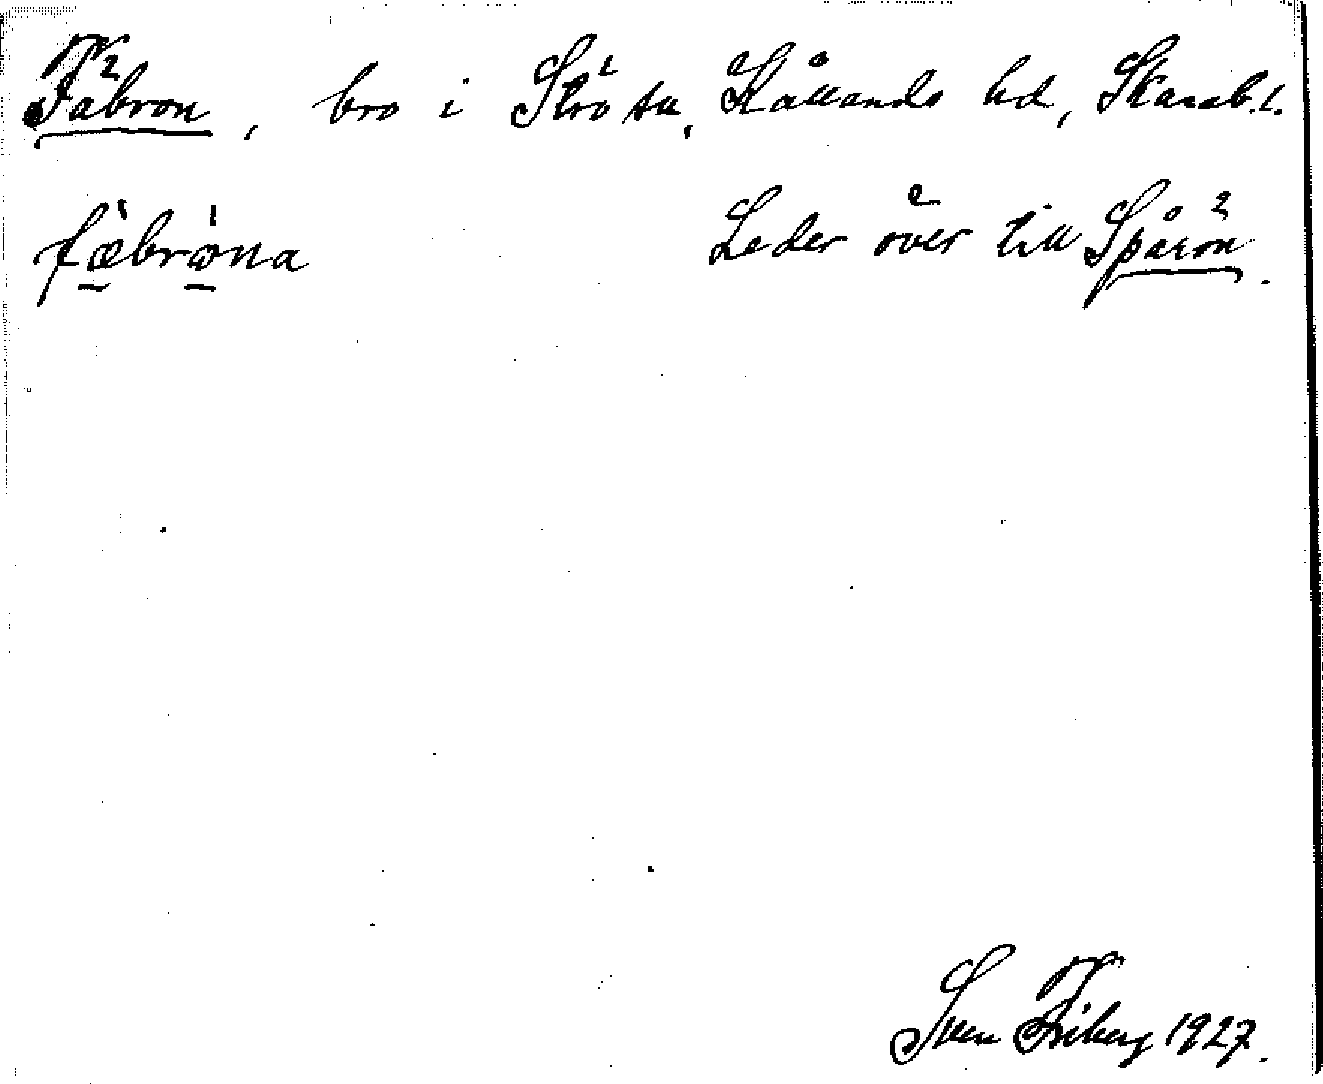 Fäbron, bro i Strö sn, Kållands hd, Skarab. l.
fæ̀brὼna Leder över till Spårön.
Sven Friberg 1927.